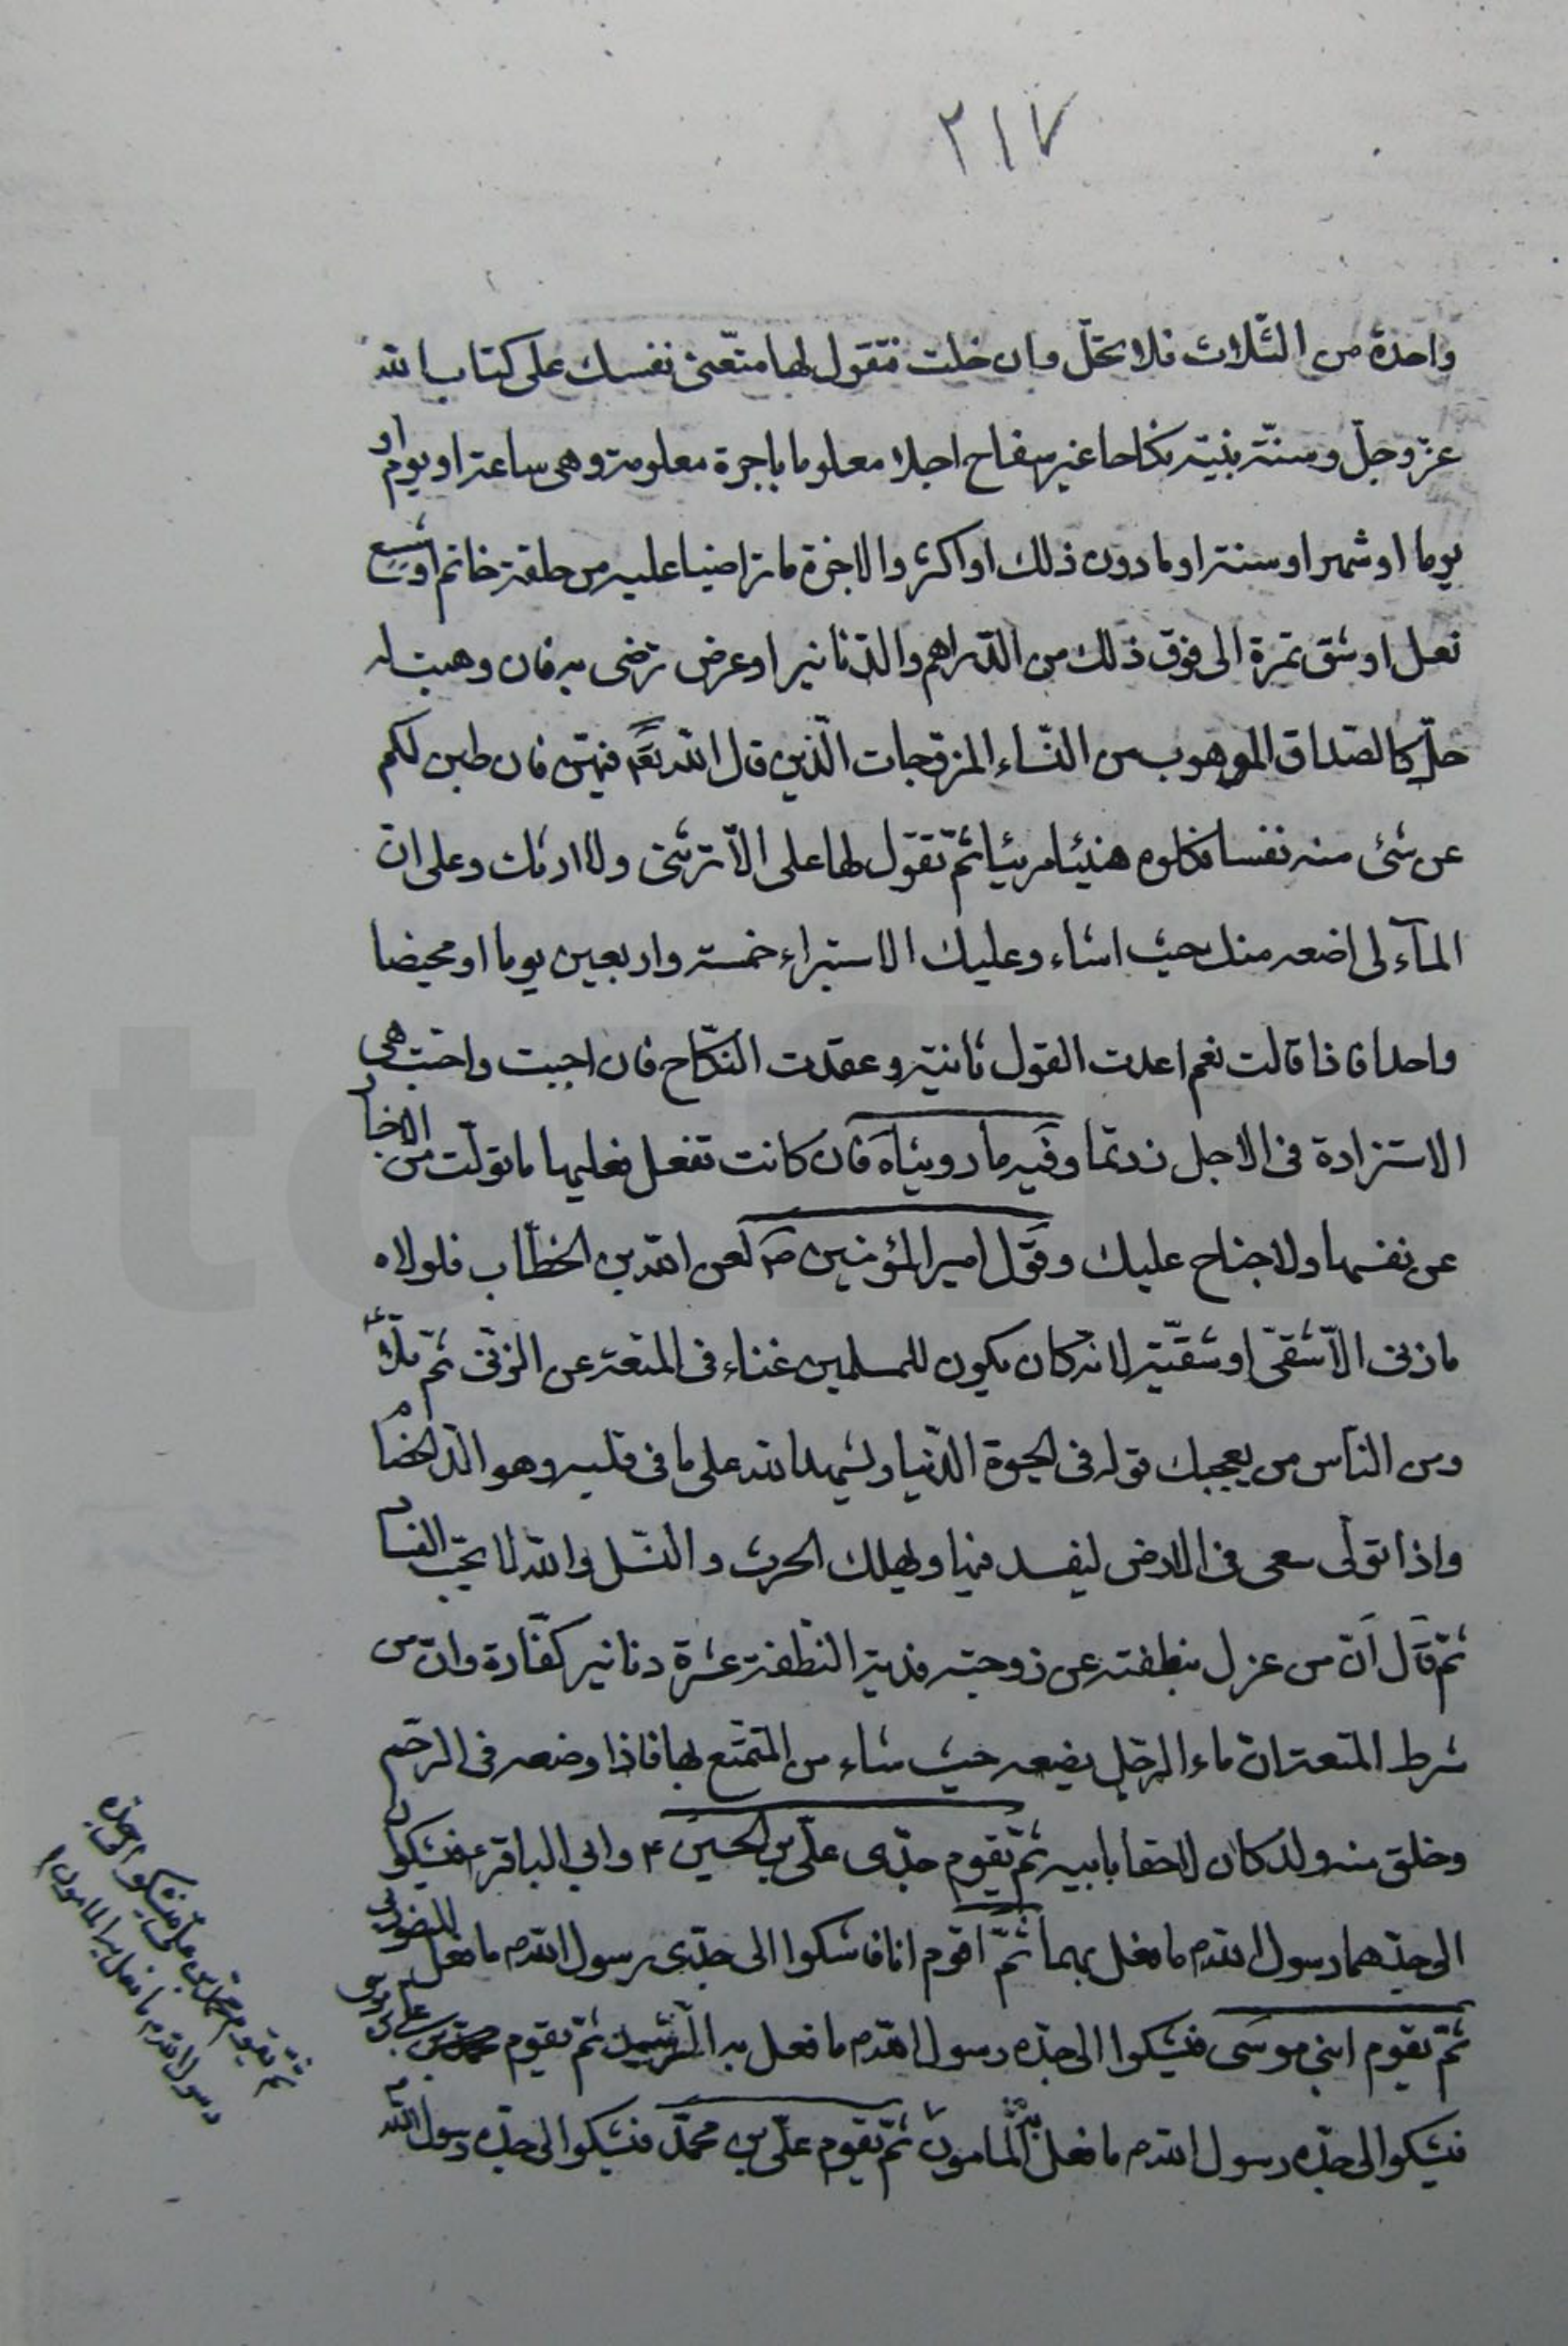 ٢١٧
واحدة من الثلاث فلا تحل وان خلت فتقول لها متعنى نفسك على كتاب الله
عز وجل وسنة نبيه نكاحا غير سفاح اجلا معلوما باجرة معلومة وهى ساعة او يوم او
يوما او شهر او سنة او ما دون ذلك او اكثر والاجرة ما تراضيا عليه من حلقة خاتم او شسع
نعل او شق تمرة الى فوق ذلك من الدراهم والدنانير او عرض ترضى به فان وهبت له
حل كالصداق الموهوب من النساء المزوجات الذين قال الله تعالى فيهن فان طبن لكم
عن شئ منه نفسا فكلوه هنيئا مريئا ثم تقول لها على الا ترثنى ولا ارثك وعلى ان
المآء لى اضعه منك حيث اشاء وعليك الاستبراء خمسة واربعين يوما او محيضا
واحدا فاذا قالت نعم اعدت القول ثانية وعقدت النكاح فان احببت واحبت هى
الاستزادة فى الاجل زدتما وفيه ما رويناه فان كانت تفعل فعليها ما تولت من الاخبار
عن نفسها ولا جناح عليك وقول امير المؤمنين ص لعن الله بن الخطاب فلولاه
ما زنى الا شقى او شقية لانه كان يكون للمسلمين غناء فى المتعة عن الزنى ثم تلا
ومن الناس من يعجبك قوله فى الحيوة الدنيا ويشهد الله على ما فى قلبه وهو الد الخصام
واذا تولى سعى فى الارض ليفسد فيها ويهلك الحرث والنسل والله لا يحب الفساد
ثم قال ان من عزل بنطفته عن زوجته فدية النطفة عشرة دنانير كفارة وان من
شرط المتعة ان ماء الرجل يضعه حيث شاء من المتمتع بها فاذا وضعه فى الرحم
وخلق منه ولد كان لاحقا بابيه ثم يقوم جدى على بن الحسين ع وابي الباقر ع فيشكوان
الى جدهما رسول الله ص ما فعل بهما ثم اقوم انا فاشكوا الى جدى رسول الله ص ما فعل المنصور بى
ثم يقوم ابنى موسى فيشكوا الى جده رسول الله ص ما فعل به الرشيد ثم يقوم على بن موسى
فيشكوا الى جده رسول الله ص ما فعل به المامون ثم يقوم على بن محمد فيشكوا الى جده رسول الله ص
ثم يقوم محمد بن على فيشكوا الى جده
رسول الله ص ما فعل به المامون